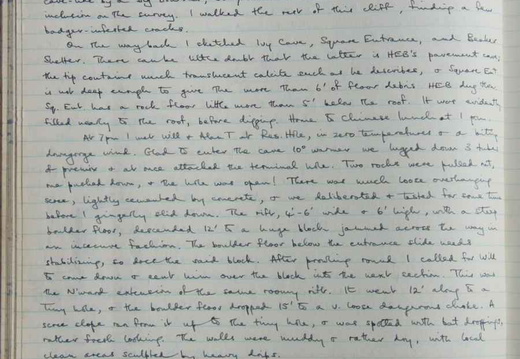 inclusion on the survey. I walked the rest of this cliff, finding a few
badger-infested cracks.
On the way back I sketched Ivy Cave, Square Entrance, and Beaker
Shelter. There can be little doubt that the latter is HEB's pavement cave;
the tip contains much translucent calcite such as he describes, & Square Ent
is not deep enough to give the more than 6' of floor debris. HEB dug
Sq. Ent has a rock floor little more than 5' below the roof. It was evidently
filled nearly to the roof, before digging. Home to Chinese lunch at 1 pm.
At 7pm I met Will & Alan T at Res. Hole, in zero temperatures & a biting
downgorge wind. Glad to enter the cave 10° warmer we lugged down 3 tubes
& at once attacked the terminal hole. Two rocks were pulled out,
one pulled down, & the hole was open! There was much loose overhanging
scree, lightly cemented by concrete, & we deliberated & tested for some time
before I gingerly slid down. The rift, 4'-6' wide & 6' high, with a steep
boulder floor, descended 12' to a huge block jammed across the way in
an insecure fashion. The boulder floor below the entrance slide needs
stabilizing, so does the said block. After probing round I called for Will
to come down & sent him over the block into the next section. This was
the N'ward extension of the same roomy rift. It went 12' along to a
tiny hole, & the boulder floor dropped 15' to a v. loose dangerous choke. A
scree slope ran from it up to the tiny hole, & was spotted with bat droppings,
rather fresh looking. The walls were muddy & rather dry, with local
clean areas sculpted by heavy drips.